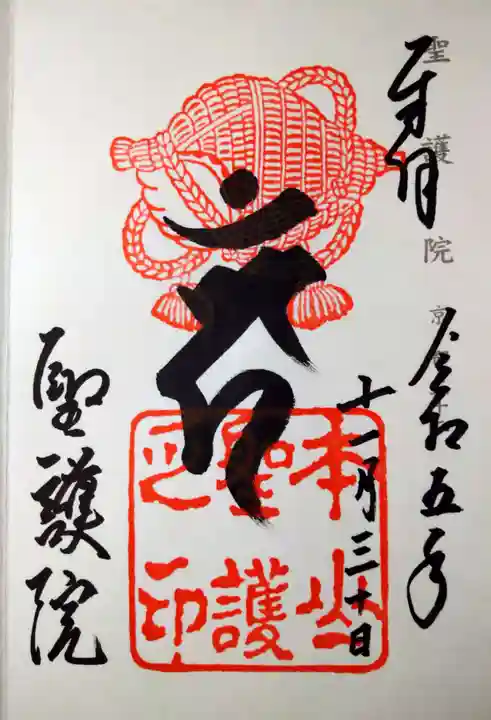 聖護院 京
令和五年
十一月三十日
本山
聖護
之印
聖護院